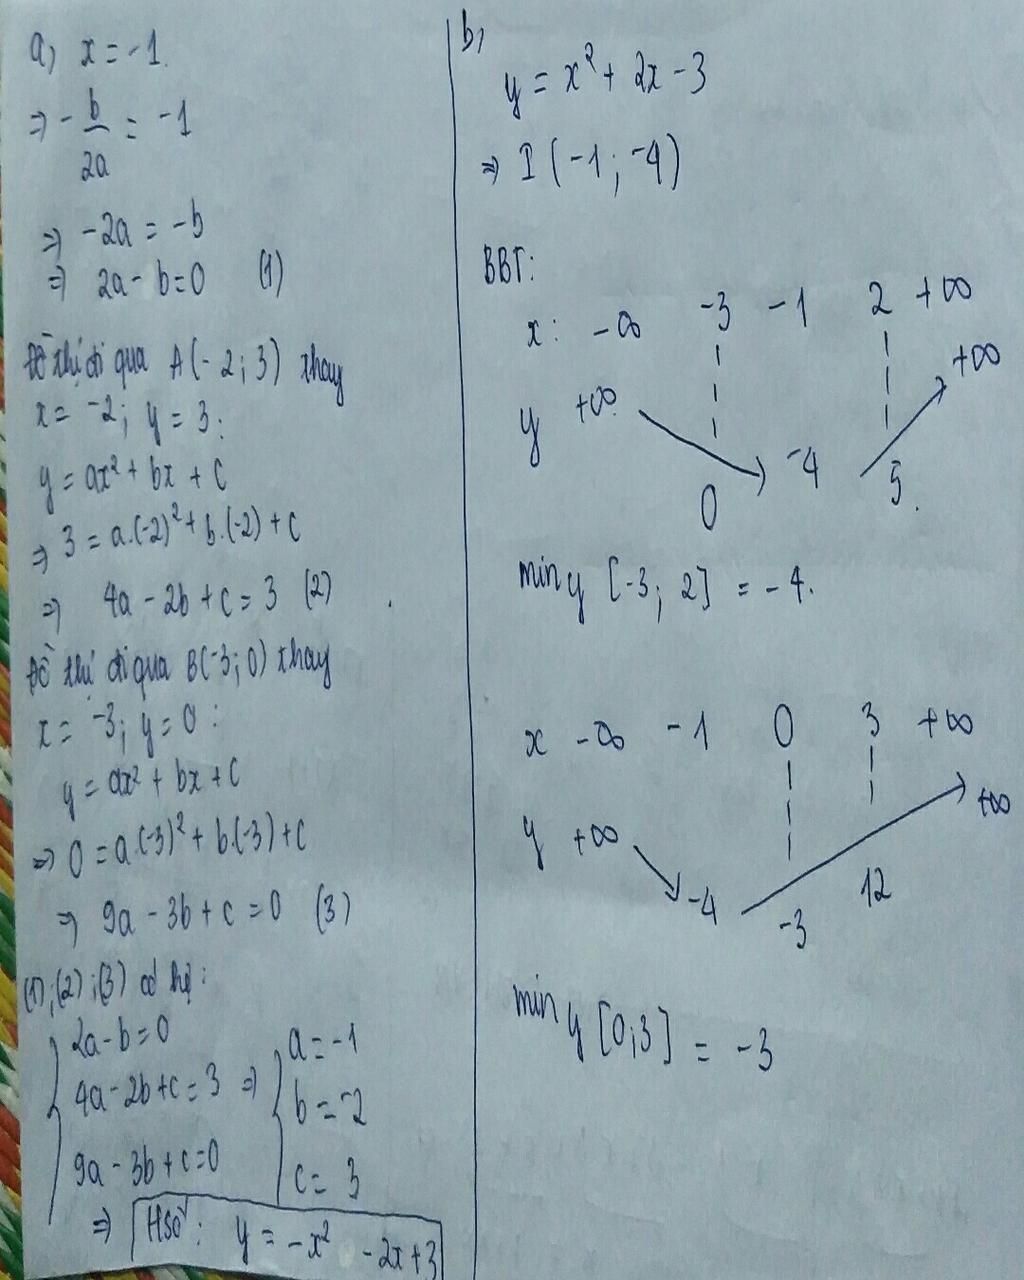 a, x = -1.
⇒ - b/2a = -1
⇒ -2a = -b
⇒ 2a - b = 0 (1)
Đồ thị đi qua A(-2; 3) thay
x = -2; y = 3:
y = ax² + bx + c
⇒ 3 = a.(-2)² + b.(-2) + c
⇒ 4a - 2b + c = 3 (2)
Đồ thị đi qua B(-3; 0) thay
x = -3; y = 0:
y = ax² + bx + c
⇒ 0 = a.(-3)² + b.(-3) + c
⇒ 9a - 3b + c = 0 (3)
(1);(2);(3) có hệ:
2a - b = 0
4a - 2b + c = 3 ⇒
9a - 3b + c = 0
a = -1
b = -2
c = 3
⇒ Hsố: y = -x² - 2x + 3
b,
y = x² + 2x - 3
⇒ I(-1; -4)
BBT:
x: -∞ -3 -1 2 +∞
y +∞ 0 -4 5. +∞
min y [-3; 2] = -4.
x -∞ -1 0 3 +∞
y +∞ -4 -3 12 +∞
min y [0;3] = -3